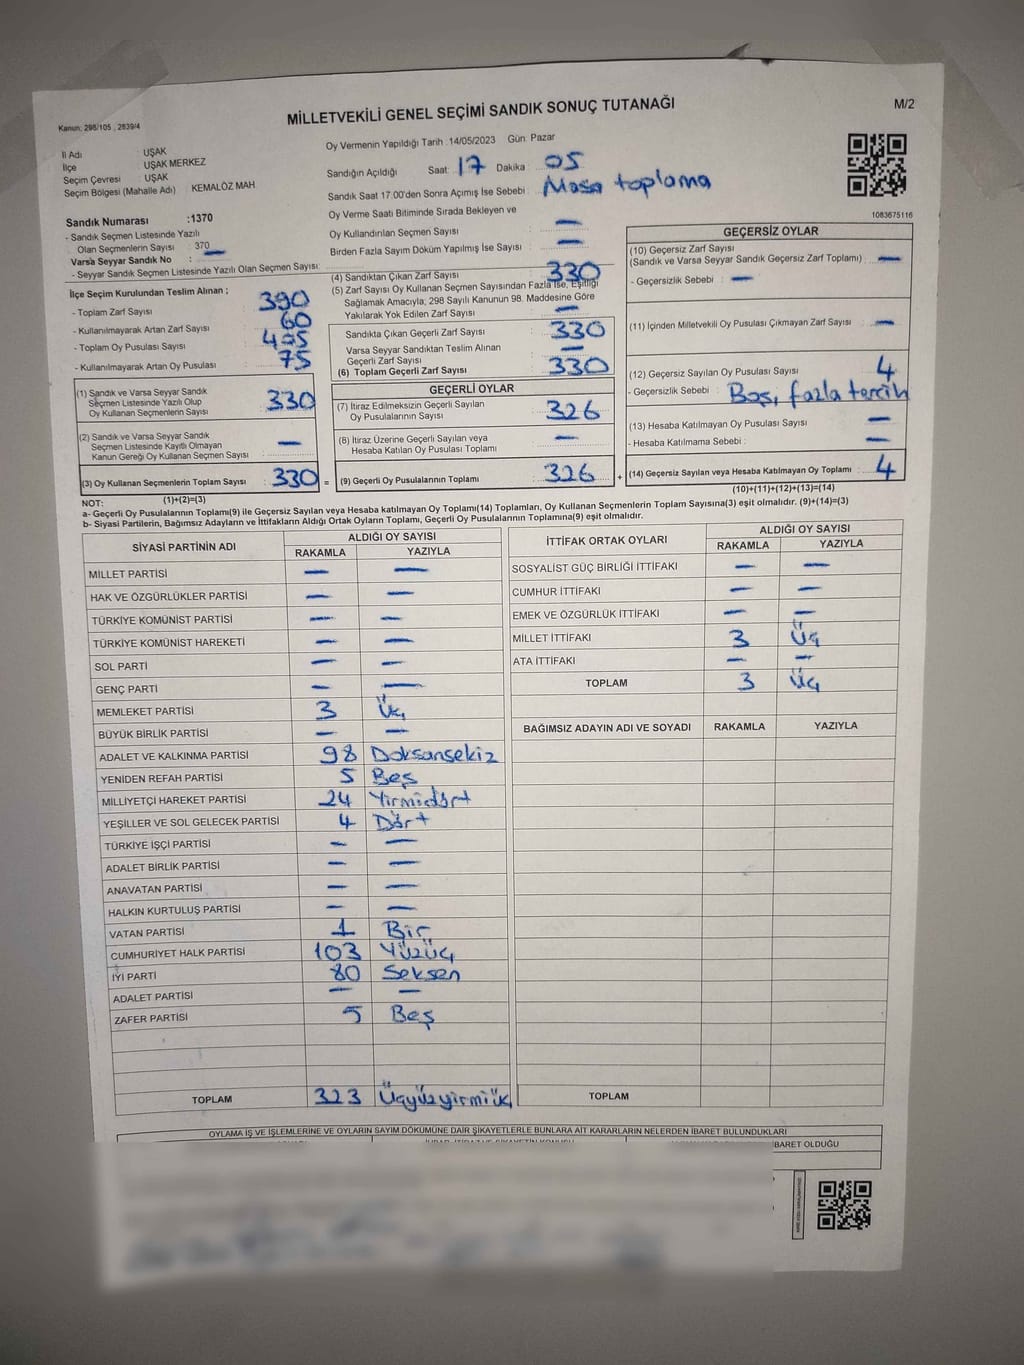 MİLLETVEKİLİ GENEL SEÇİMİ SANDIK SONUÇ TUTANAĞI
M/2
Kanun: 298/105 , 2839/4
İl Adı : UŞAK
İlçe : UŞAK MERKEZ
Seçim Çevresi : UŞAK
Seçim Bölgesi (Mahalle Adı) KEMALÖZ MAH
Oy Vermenin Yapıldığı Tarih :14/05/2023 Gün: Pazar
Sandığın Açıldığı Saat: 17 Dakika : 05
Sandık Saat 17.00'den Sonra Açımış İse Sebebi : Masa toplama
Sandık Numarası :1370
- Sandık Seçmen Listesinde Yazılı
Olan Seçmenlerin Sayısı : 370
Varsa Seyyar Sandık No : —
- Seyyar Sandık Seçmen Listesinde Yazılı Olan Seçmen Sayısı:
Oy Verme Saati Bitiminde Sırada Bekleyen ve
Oy Kullandırılan Seçmen Sayısı : —
Birden Fazla Sayım Döküm Yapılmış İse Sayısı : —
1083675116
İlçe Seçim Kurulundan Teslim Alınan ;
- Toplam Zarf Sayısı : 390
- Kullanılmayarak Artan Zarf Sayısı : 60
- Toplam Oy Pusulası Sayısı : 405
- Kullanılmayarak Artan Oy Pusulası : 75
(1) Sandık ve Varsa Seyyar Sandık
Seçmen Listesinde Yazılı Olup
Oy Kullanan Seçmenlerin Sayısı : 330
(2) Sandık ve Varsa Seyyar Sandık
Seçmen Listesinde Kayıtlı Olmayan
Kanun Gereği Oy Kullanan Seçmen Sayısı : —
(3) Oy Kullanan Seçmenlerin Toplam Sayısı : 330
(4) Sandıktan Çıkan Zarf Sayısı : 330
(5) Zarf Sayısı Oy Kullanan Seçmen Sayısından Fazla İse, Eşitliği
Sağlamak Amacıyla, 298 Sayılı Kanunun 98. Maddesine Göre
Yakılarak Yok Edilen Zarf Sayısı : —
Sandıkta Çıkan Geçerli Zarf Sayısı : 330
Varsa Seyyar Sandıktan Teslim Alınan
Geçerli Zarf Sayısı : —
(6) Toplam Geçerli Zarf Sayısı : 330
GEÇERLİ OYLAR
(7) İtiraz Edilmeksizin Geçerli Sayılan
Oy Pusulalarının Sayısı : 326
(8) İtiraz Üzerine Geçerli Sayılan veya
Hesaba Katılan Oy Pusulası Toplamı : —
= (9) Geçerli Oy Pusulalarının Toplamı : 326 +
GEÇERSİZ OYLAR
(10) Geçersiz Zarf Sayısı
(Sandık ve Varsa Seyyar Sandık Geçersiz Zarf Toplamı) : —
- Geçersizlik Sebebi : —
(11) İçinden Milletvekili Oy Pusulası Çıkmayan Zarf Sayısı : —
(12) Geçersiz Sayılan Oy Pusulası Sayısı : 4
- Geçersizlik Sebebi : Boş, fazla tercih
(13) Hesaba Katılmayan Oy Pusulası Sayısı : —
- Hesaba Katılmama Sebebi : —
(14) Geçersiz Sayılan veya Hesaba Katılmayan Oy Toplamı : 4
NOT: (1)+(2)=(3) (10)+(11)+(12)+(13)=(14)
a- Geçerli Oy Pusulalarının Toplamı(9) ile Geçersiz Sayılan veya Hesaba katılmayan Oy Toplamı(14) Toplamları, Oy Kullanan Seçmenlerin Toplam Sayısına(3) eşit olmalıdır. (9)+(14)=(3)
b- Siyasi Partilerin, Bağımsız Adayların ve İttifakların Aldığı Ortak Oyların Toplamı, Geçerli Oy Pusulalarının Toplamına(9) eşit olmalıdır.
SİYASİ PARTİNİN ADI ALDIĞI OY SAYISI
RAKAMLA YAZIYLA
MİLLET PARTİSİ — —
HAK VE ÖZGÜRLÜKLER PARTİSİ — —
TÜRKİYE KOMÜNİST PARTİSİ — —
TÜRKİYE KOMÜNİST HAREKETİ — —
SOL PARTİ — —
GENÇ PARTİ — —
MEMLEKET PARTİSİ 3 Üç
BÜYÜK BİRLİK PARTİSİ — —
ADALET VE KALKINMA PARTİSİ 98 Doksansekiz
YENİDEN REFAH PARTİSİ 5 Beş
MİLLİYETÇİ HAREKET PARTİSİ 24 Yirmidört
YEŞİLLER VE SOL GELECEK PARTİSİ 4 Dört
TÜRKİYE İŞÇİ PARTİSİ — —
ADALET BİRLİK PARTİSİ — —
ANAVATAN PARTİSİ — —
HALKIN KURTULUŞ PARTİSİ — —
VATAN PARTİSİ 1 Bir
CUMHURİYET HALK PARTİSİ 103 Yüzüç
İYİ PARTİ 80 Seksen
ADALET PARTİSİ — —
ZAFER PARTİSİ 5 Beş
TOPLAM 323 Üçyüzyirmiüç
İTTİFAK ORTAK OYLARI ALDIĞI OY SAYISI
RAKAMLA YAZIYLA
SOSYALİST GÜÇ BİRLİĞİ İTTİFAKI — —
CUMHUR İTTİFAKI — —
EMEK VE ÖZGÜRLÜK İTTİFAKI — —
MİLLET İTTİFAKI 3 Üç
ATA İTTİFAKI — —
TOPLAM 3 Üç
BAĞIMSIZ ADAYIN ADI VE SOYADI RAKAMLA YAZIYLA
TOPLAM
OYLAMA İŞ VE İŞLEMLERİNE VE OYLARIN SAYIM DÖKÜMÜNE DAİR ŞİKAYETLERLE BUNLARA AİT KARARLARIN NELERDEN İBARET BULUNDUKLARI
İBARET OLDUĞU